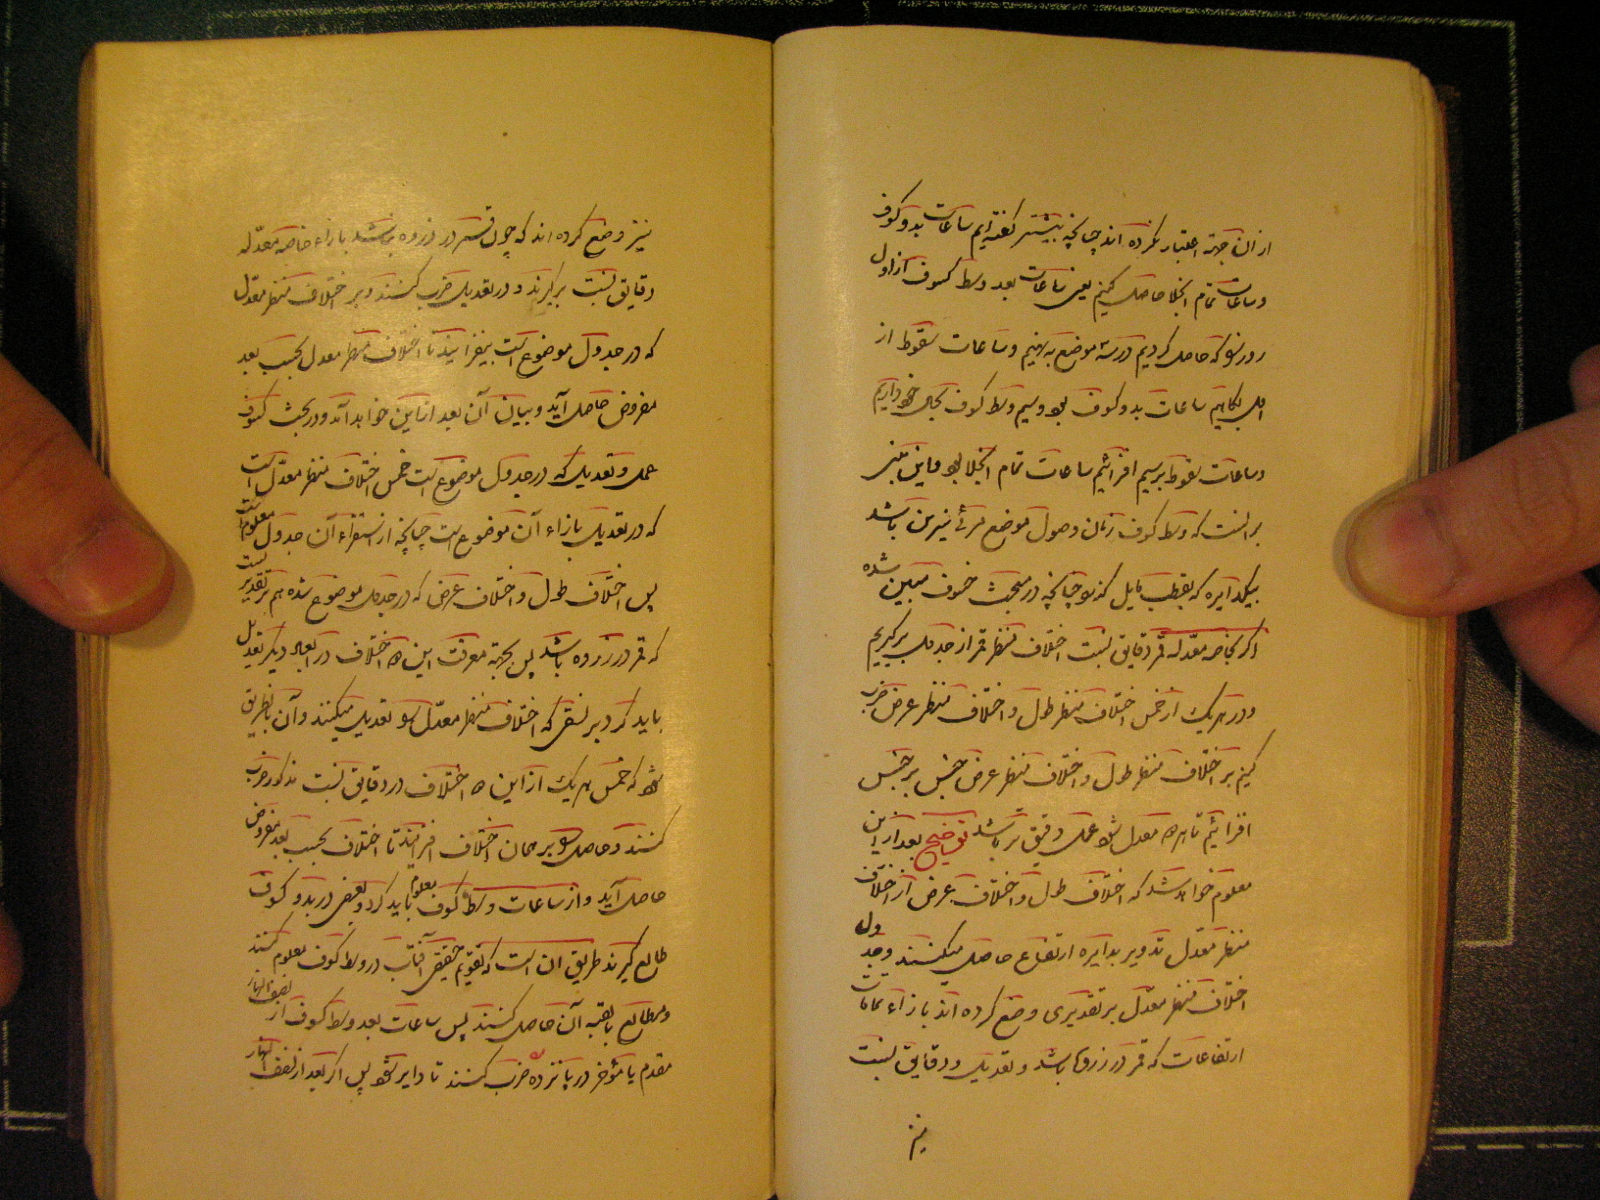 از آن جهة اعتبار نکرده اند چنانچه پیشتر گفته ایم ساعات بدو کسوف
و ساعات تمام انجلا حاصل کنیم یعنی ساعات بعد وسط کسوف از اول
روز نو که حاصل کردیم در سه موضع بنهیم و ساعات سقوط از
اول بکاهیم ساعات بدو کسوف بود و سیم وسط کسوف بحال خود داریم
و ساعات سقوط بر سیم افزائیم ساعات تمام انجلا بود و این مبنی
بر آنست که وسط کسوف زمان وصول موضع مرئی نیرین باشد
بیکدایره که بقطب مایل گذرد چنانچه در مبحث خسوف مبین شده
و اگر بخاصه معدله قمر دقایق نسبت اختلاف منظر قمر از جدول برگیریم
و در هر یک از خمس اختلاف منظر طول و اختلاف منظر عرض ضرب
کنیم بر اختلاف منظر طول و اختلاف منظر عرض جنس بر جنس
افزائیم تا هر دو معدل شود عمل دقیق تر باشد توضیح بعد از این
معلوم خواهد شد که اختلاف طول و اختلاف عرض از اختلاف
منظر معدل تدویر بدایره ارتفاع حاصل میکنند و جدول
اختلاف منظر معدل بر تقدیری وضع کرده اند بازاء تمامات
ارتفاعات که قمر در ذروه باشد و تعدیل و دقایق نسبت
نیز
نیز وضع کرده اند که چون قمر در ذروه نباشد بازاء خاصه معدله
دقایق نسبت برگیرند و در تعدیل ضرب کنند و بر اختلاف منظر معدل
که در جدول موضوع است بیفزایند تا اختلاف منظر معدل بحسب بعد
مفروض حاصل آید و بیان آن بعد از این خواهد آمد و در بحث کسوف
عمل و تعدیل که در جدول موضوع است خمس اختلاف منظر معدل است
که در تعدیل بازاء آن موضوع است چنانچه از استقراء آن جدول معلوم است
پس اختلاف طول و اختلاف عرض که در جدول موضوع شده هم بر تقدیر است
که قمر در ذروه باشد پس بجهة معرفت این دو اختلاف در ابعاد دیگر تعدیل
باید کرد بر نسقی که اختلاف منظر معدل را تعدیل میکنند و آن بطریق
شود که خمس هر یک از این دو اختلاف در دقایق نسبت مذکور ضرب
کنند و حاصل را بر همان اختلاف افزایند تا اختلاف بحسب بعد مفروض
حاصل آید و از ساعات وسط کسوف معلوم باید کرد و بعضی در بدو کسوف
طالع گیرند طریق آن است که تقویم حقیقی آفتاب در وسط کسوف معلوم کنند
و مطالع بالقبه آن حاصل کنند پس ساعات بعد وسط کسوف از نصف النهار
مقدم یا مؤخر در پانزده ضرب کنند تا دایر شود پس اگر بعد از نصف النهار